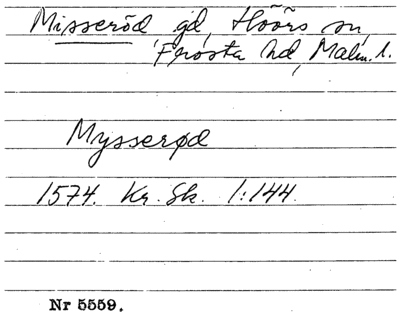 Misseröd, gd, Höörs sn,
Frosta hd, Malm. l.
Mysserød
1574. Kr. Sk. 1:144.
Nr 5559.